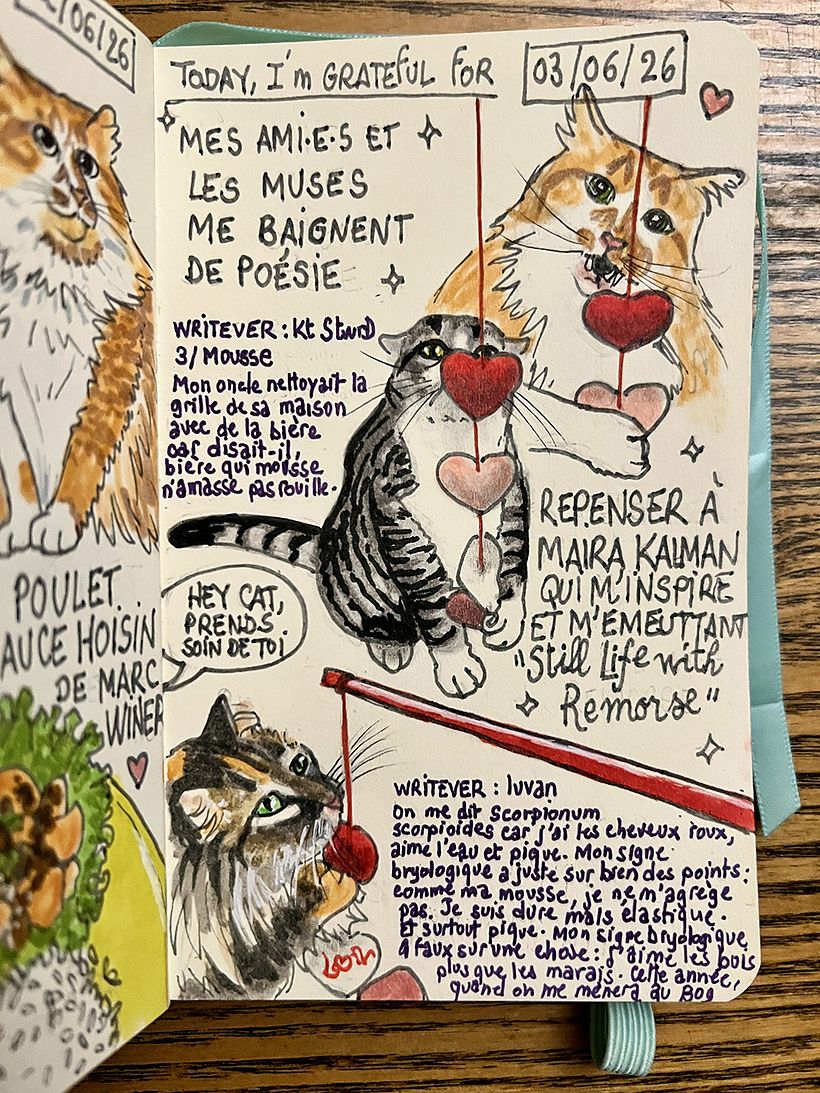 /06/26
POULET
AUCE HOISIN
DE MARC
WINER
TODAY, I'm GRATEFUL FOR
03/06/26
MES AMI·E·S ET
LES MUSES
ME BAIGNENT
DE POÉSIE
WRITEVER : Kt Stwrd
3/ Mousse
Mon oncle nettoyait la
grille de sa maison
avec de la bière
car disait-il,
bière qui mousse
n'amasse pas rouille.
REPENSER À
MAIRA KALMAN
QUI M'INSPIRE
ET M'ÉMEUT TANT
"Still Life with
Remorse"
HEY CAT,
PRENDS
SOIN DE TOI
WRITEVER : luvan
On me dit Scorpionum
scorpioides car j'ai les cheveux roux,
aime l'eau et pique. Mon signe
bryologique a juste sur bien des points :
comme ma mousse, je ne m'agrège
pas. Je suis dure mais élastique.
Et surtout pique. Mon signe bryologique
a faux sur une chose : j'aime les bois
plus que les marais. Cette année,
quand on me mènera au Bog